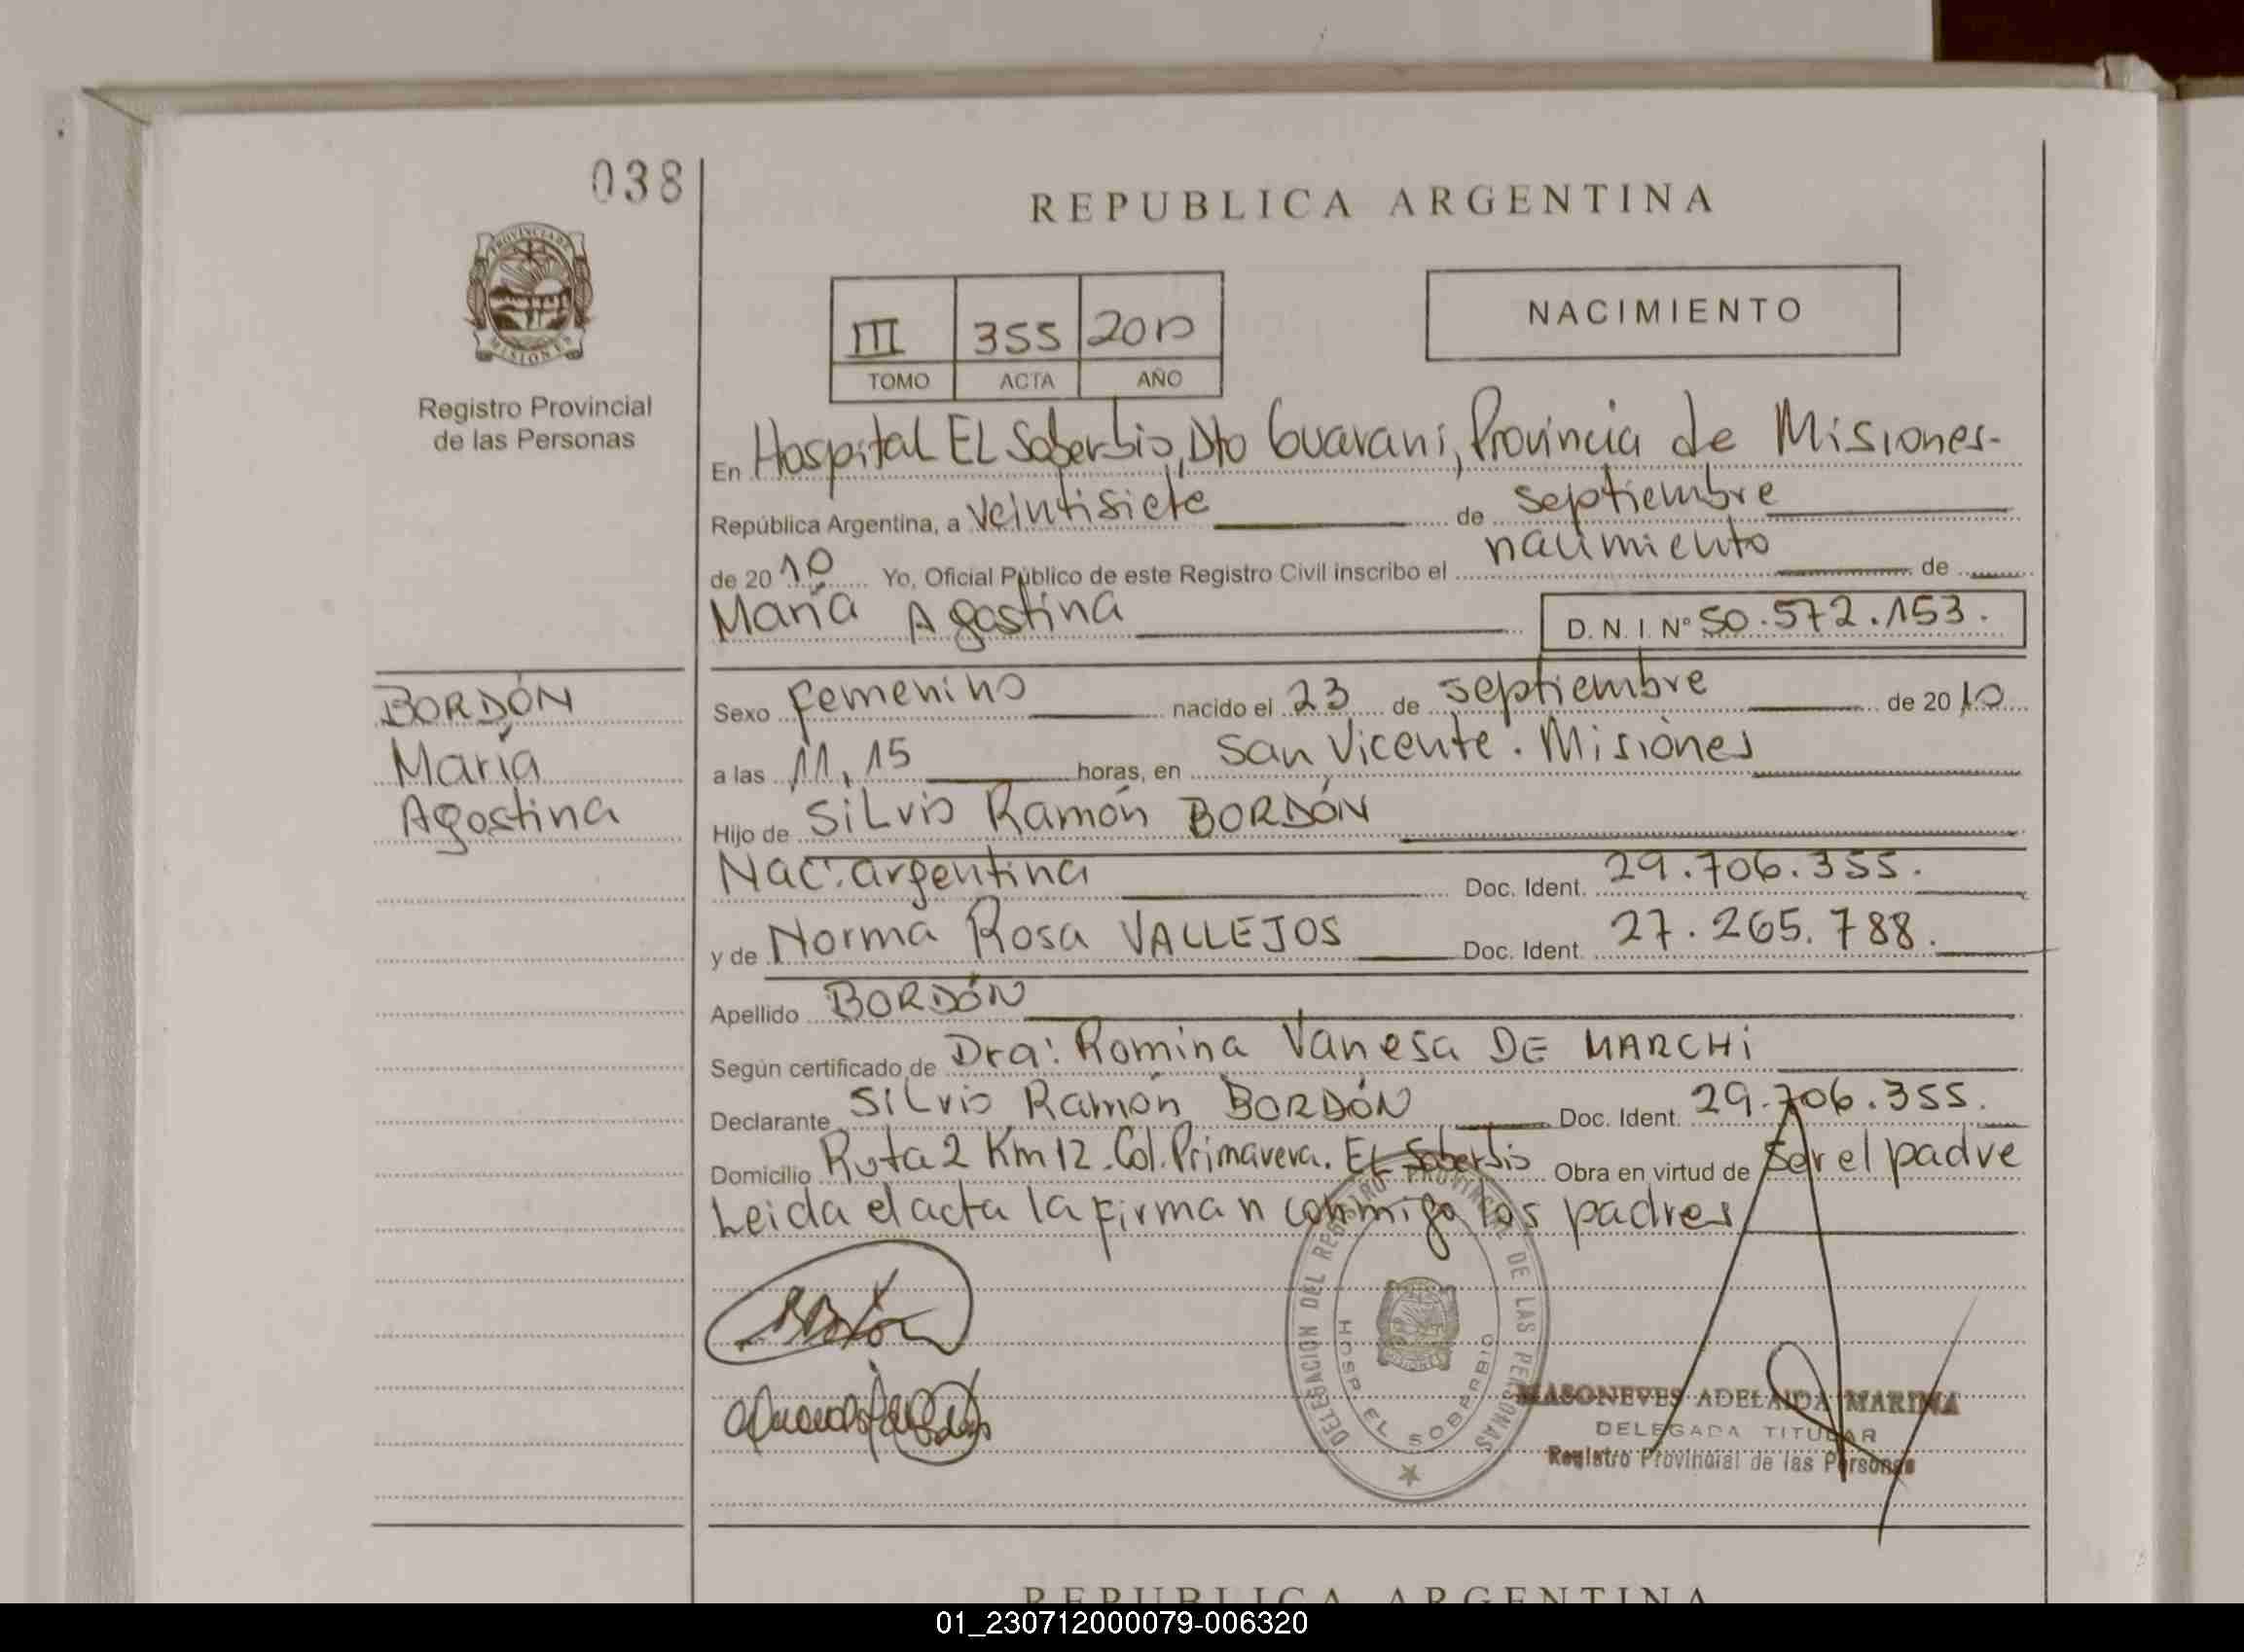 038
REPUBLICA ARGENTINA
PROVINCIA DE
MISIONES
Registro Provincial
de las Personas
III 355 2010
TOMO ACTA AÑO
NACIMIENTO
En Hospital EL Soberbio, Dto Guaraní, Provincia de Misiones-
República Argentina, a veintisiete de septiembre
de 2010 Yo, Oficial Público de este Registro Civil inscribo el nacimiento de
María Agostina D.N.I. Nº 50.572.153.
BORDÓN
María
Agostina
Sexo femenino nacido el 23 de septiembre de 2010
a las 11,15 horas, en San Vicente. Misiones
Hijo de SiLvio Ramón BORDÓN
Nac: argentina Doc. Ident. 29.706.355.
y de Norma Rosa VALLEJOS Doc. Ident. 27.265.788.
Apellido BORDÓN
Según certificado de Dra: Romina Vanesa DE MARCHi
Declarante SiLvio Ramón BORDÓN Doc. Ident. 29.706.355.
Domicilio Ruta 2 Km 12. Col. Primavera. EL Soberbio Obra en virtud de Ser el padre
Leida el acta la firman conmigo los padres
DELEGACION DEL REGISTRO PROVINCIAL DE LAS PERSONAS
HOSP. EL SOBERBIO
ADELAIDA MARINA
DELEGADA TITULAR
Registro Provincial de las Personas
REPUBLICA ARGENTINA
01_230712000079-006320